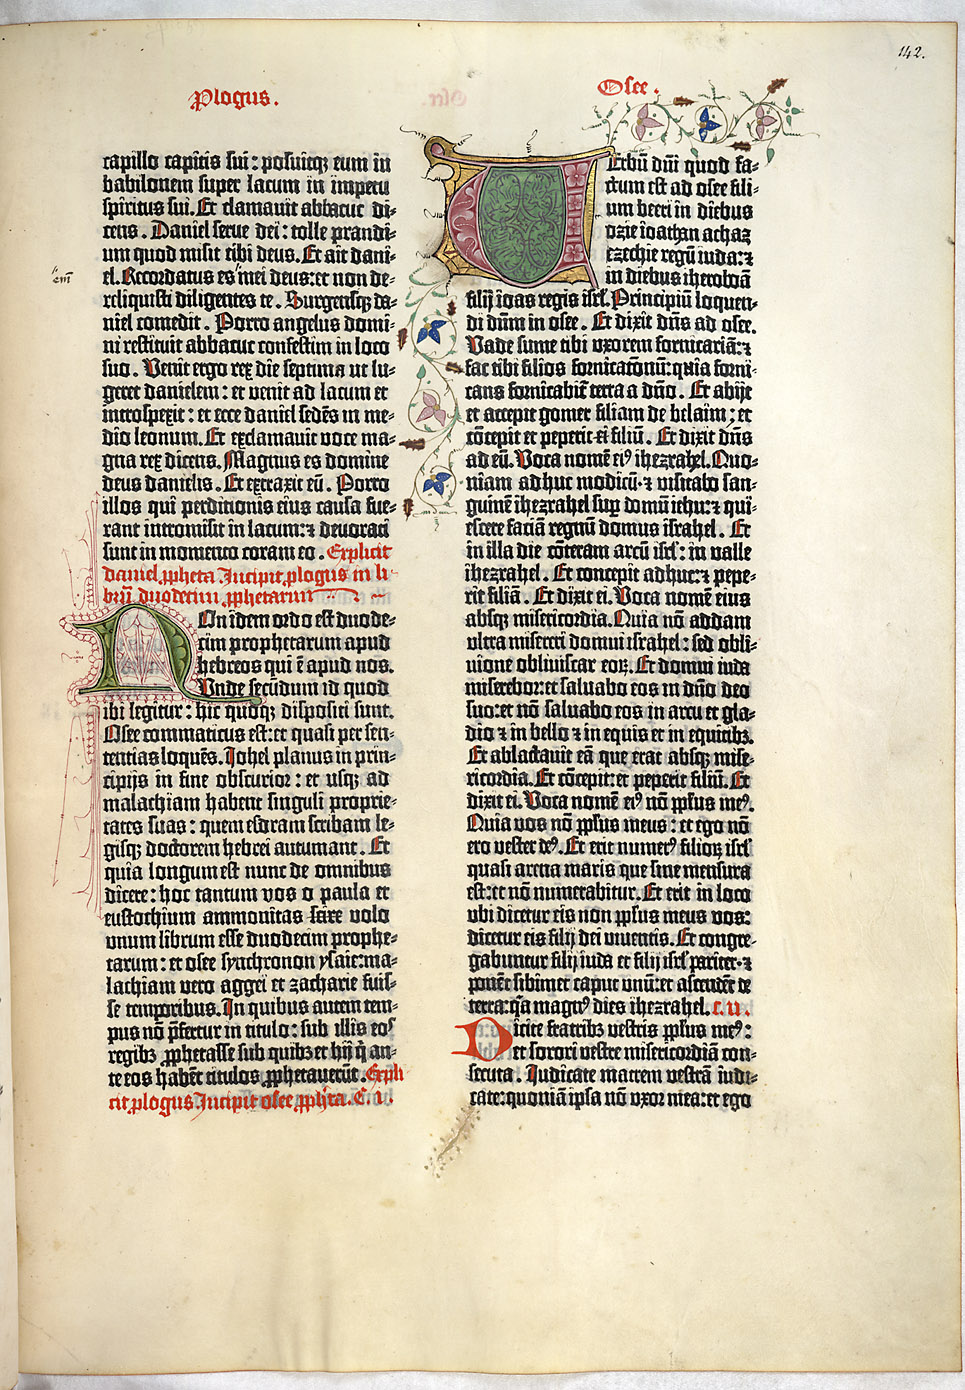 142.
Plogus.
Osee.
capillo capitis sui : posuitqꝫ eum in
babilonem super lacum in impetu
spiritus sui. Et clamauit abbacuc di⸗
cens . Daniel serue dei : tolle prandi⸗
um quod misit tibi deus. Et ait dani⸗
el. Recordatus es mei deus: et non de⸗
reliquisti diligentes te . Surgensqꝫ da⸗
niel comedit . Porro angelus domi⸗
ni restituit abbacuc confestim in loco
suo . Venit ergo rex die septima ut lu⸗
geret danielem : et venit ad lacum et
introspexit : et ecce daniel sedēs in me⸗
dio leonum. Et exclamauit voce ma⸗
gna rex dicens. Magnus es domine
deus danielis . Et extraxit eū . Porro
illos qui perditionis eius causa fue⸗
rant intromisit in lacum: ⁊ deuorati
sunt in momento coram eo . Explicit
daniel ꝓpheta. Incipit ꝓlogus in li
brū duodecim ꝓphetarum
NOn idem ordo est duode⸗
cim prophetarum apud
hebreos qui ē apud nos.
Vnde secūdum id quod
ibi legitur : hic quoqꝫ dispositi sunt.
Osee commaticus est: et quasi per sen⸗
tentias loquēs. Iohel planus in prin⸗
cipijs in fine obscurior : et usqꝫ ad
malachiam habent singuli proprie⸗
tates suas : quem esdram scribam le⸗
gisqꝫ doctorem hebrei autumant . Et
quia longum est nunc de omnibus
dicere : hoc tantum vos o paula et
eustochium ammonitas fare volo
vnum librum esse duodecim prophe⸗
tarum : et osee synchronon ysaie: ma⸗
lachiam vero aggei et zacharie fuis⸗
se temporibus. In quibus autem tem⸗
pus nō p̄fertur in titulo : sub illis eos
regibꝫ ꝓphetasse sub quibꝫ et hij q̄ an⸗
te eos habēt titulos ꝓphetauerūt . Expli
cit ꝓlogus Incipit osee ꝓpheta. C. i .
VErbū dn̄i quod fa⸗
ctum est ad osee fili⸗
um beeri in diebus
ozie ioathan achaz
ezechie regū iuda: ⁊
in diebus iheroboā
filij ioas regis isrl̄. Principiū loquen⸗
di dn̄m in osee . Et dixit dn̄s ad osee.
Vade sume tibi vxorem fornicariā: ⁊
fac tibi filios fornicatōnū: quia forni⸗
cans fornicabit̄ terra a dn̄o . Et abijt
et accepit gomer filiam de belaim ; et
cōcepit et peperit ei filiū . Et dixit dn̄s
ad eū. Voca nomē eiꝰ ihezrahel. Quo⸗
niam adhuc modicū: ⁊ visitabo san⸗
guinē ihezrahel sup̄ domū iehu: ⁊ qui⸗
escere faciā regnū domus israhel . Et
in illa die cōteram arcū isrl̄ : in valle
ihezrahel . Et concepit adhuc: ⁊ pepe⸗
rit filiā . Et dixit ei. Voca nomē eius
absqꝫ misericordia. Quia nō addam
ultra misereri domui israhel : sed obli⸗
uione obliuiscar eoꝝ. Et domui iuda
miserebor: et saluabo eos in dn̄o deo
suo: et nō saluabo eos in arcu et gla⸗
dio ⁊ in bello ⁊ in equis et in equitibꝫ.
Et ablactauit eā que erat absqꝫ mise⸗
ricordia. Et cōcepit: et peperit filiū. Et
dixit ei. Voca nomē eiꝰ nō ppl̄us meꝰ.
Quia vos nō ppl̄us meus : et ego nō
ero vester deꝰ. Et erit numerꝰ filioꝝ isrl̄
quasi arena maris que sine mensura
est: et nō numerabitur. Et erit in loco
vbi dicetur eis non ppl̄us meus vos:
dicetur eis filij dei viuentis. Et congre⸗
gabuntur filij iuda et filij isrl̄ pariter: ⁊
ponēt sibimet caput vnū: et ascendēt de
terra: q̄a magnꝰ dies ihezrahel. c. ii .
DIcite fratribꝫ vestris ppl̄us meꝰ :
et sorori vestre misericordiā con⸗
secuta . Iudicate matrem vestrā iudi⸗
cate: quoniā ipsa nō vxor mea: et ego